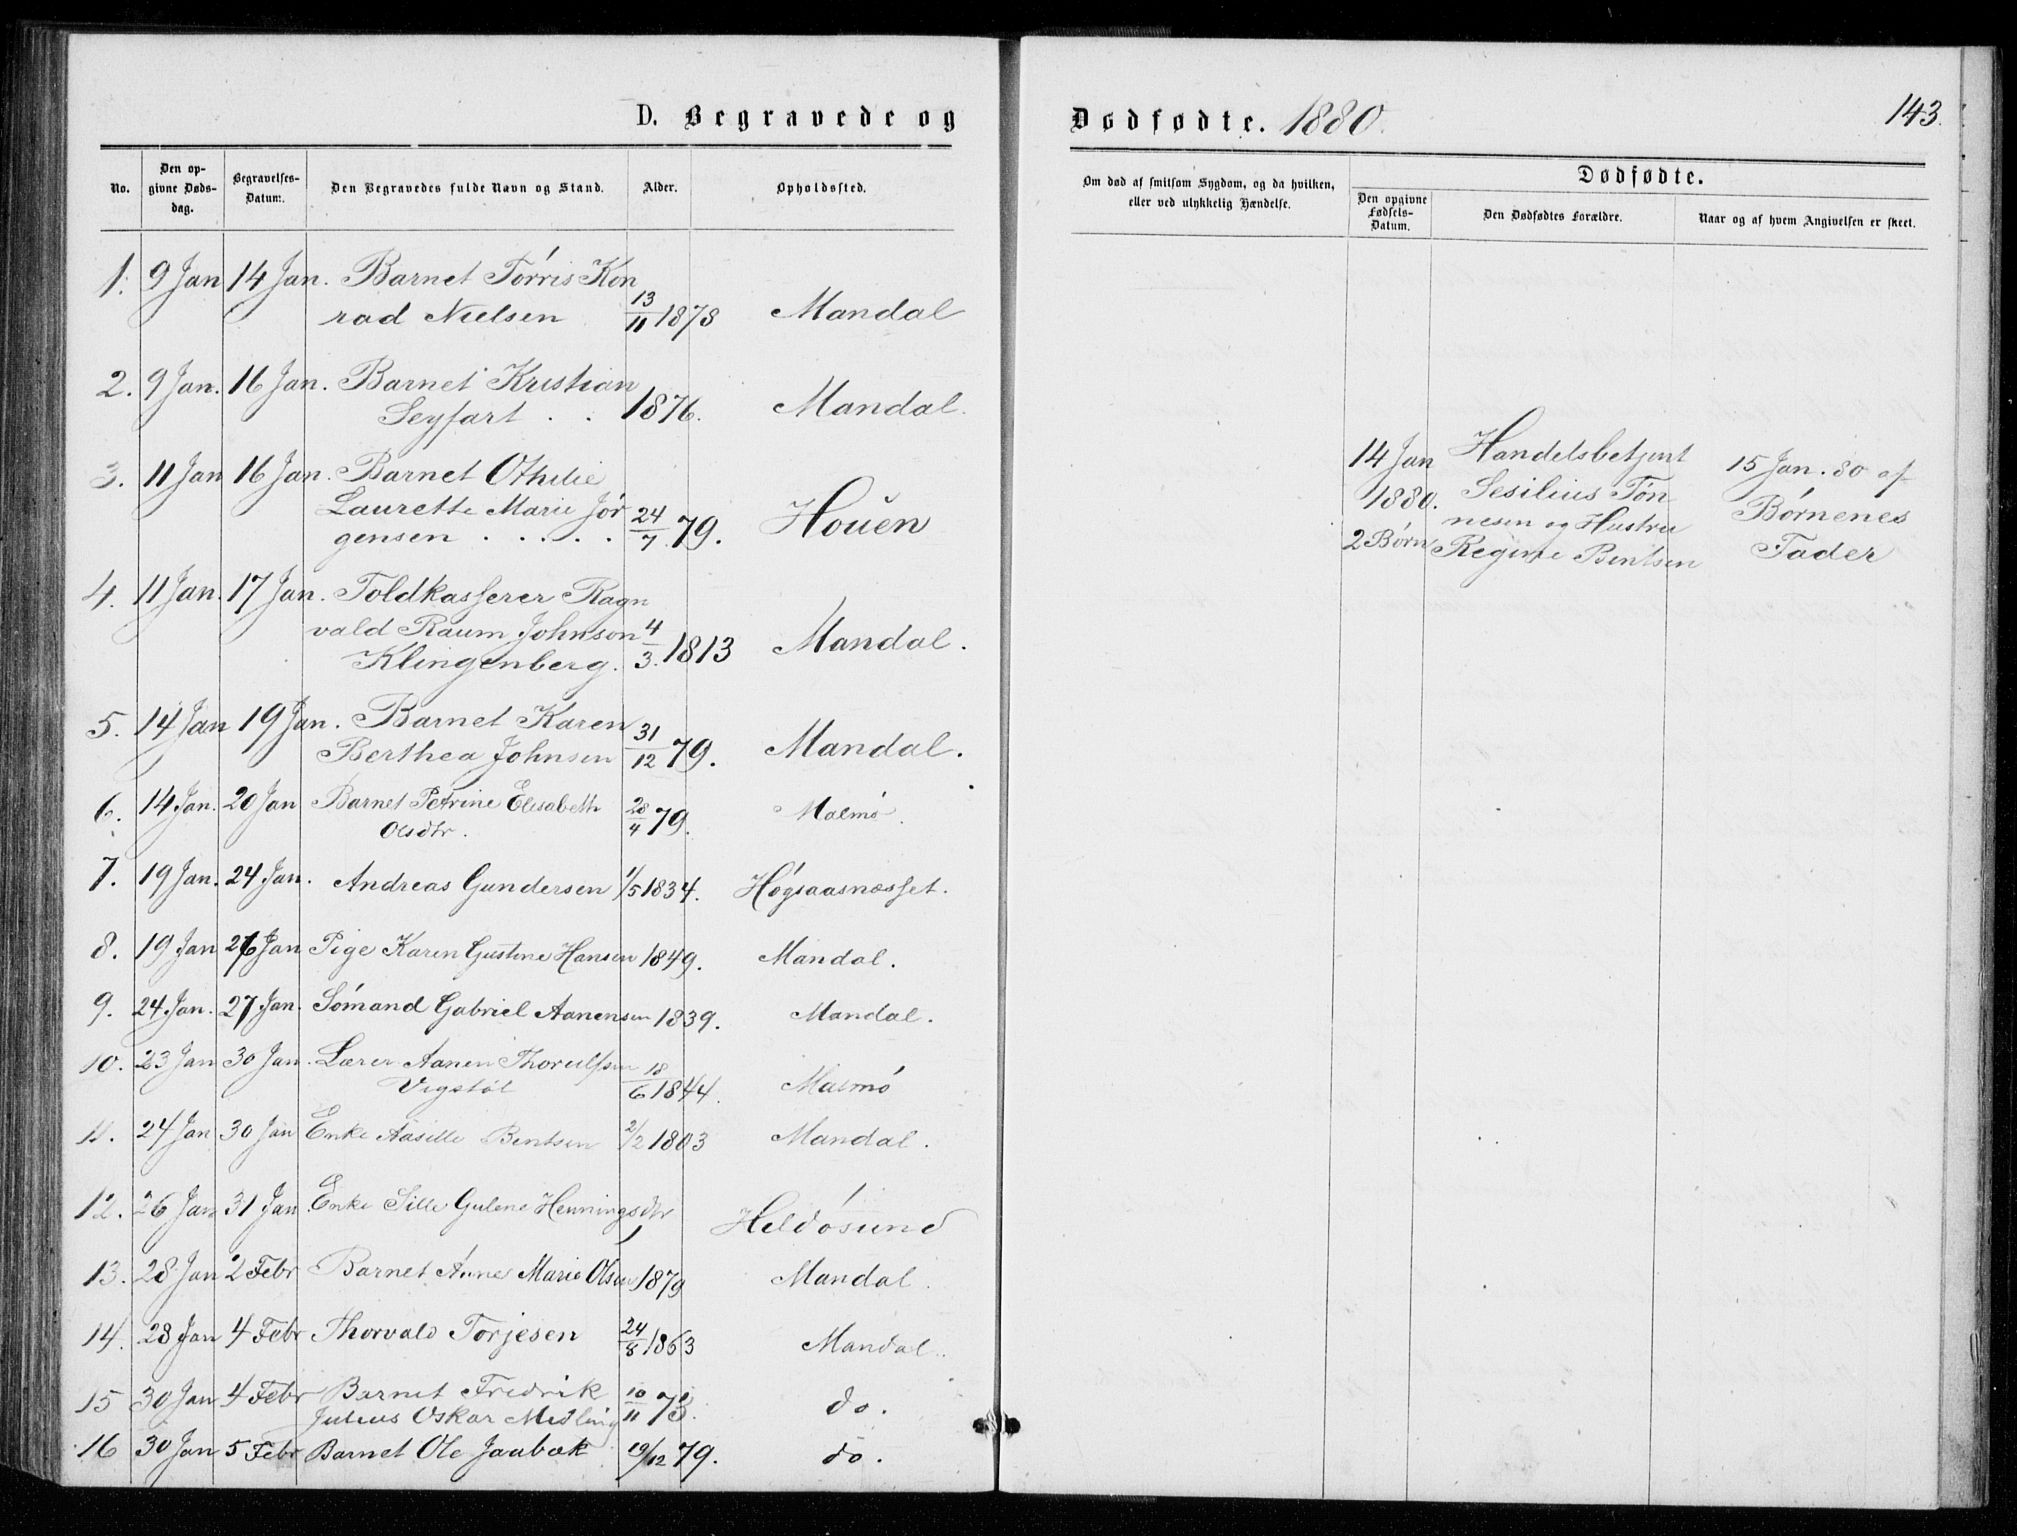 D. Begravede og
No.
Den op-
givne Døds-
dag.
Begravelses-
Datum.
Den Begravedes fulde Navn og Stand.
Alder.
Opholdssted.
1. 9 Jan 14 Jan. Barnet Tørris Kon
rad Nielsen 13/11 1878 Mandal
2. 9 Jan. 16 Jan. Barnet Kristian
Seyfart . . 1876. Mandal.
3. 11 Jan 16 Jan. Barnet Othilie
Laurette Marie Jør
gensen . . . . . 24/7 79. Houen
4. 11 Jan. 17 Jan. Toldkasserer Ragn
vald Raum Johnson
Klingenberg. 4/3. 1813 Mandal.
5. 14 Jan 19 Jan. Barnet Karen
Berthea Johnsen 31/12 79. Mandal.
6. 14 Jan. 20 Jan Barnet Petrine Elisabeth
Olsdtr. 28/4 79. Malmø.
7. 19 Jan. 24 Jan. Andreas Gundersen 1/5 1834. Høgsaasnæsset.
8. 19 Jan 26 Jan Pige Karen Gustine Hansen 1849. Mandal.
9. 24 Jan. 27 Jan. Sømand Gabriel Aanensen 1839. Mandal.
10. 23 Jan 30 Jan. Lærer Aanen Thorulfsen
Vigstøl 18/6 1844. Malmø
11. 24 Jan 30 Jan Enke Aasille Bentsen 2/2 1803 Mandal.
12. 26 Jan 31 Jan Enke Sille Gulene Henningsdtr Heldøsund
13. 28 Jan 2 Febr Barnet Anne Marie Olsen 1879 Mandal.
14. 28 Jan 4 Febr Thorvald Torjesen 24/8 1863 Mandal.
15 30 Jan 4 Febr Barnet Fredrik
Julius Oskar Midling 10/11 78. do.
16 30 Jan 5 Febr Barnet Ole Jaabæk 19/12 79. do.
Dødfødte. 1880.
143.
Om død af smitsom Sygdom, og da hvilken,
eller ved ulykkelig Hændelse.
Dødfødte.
Den opgivne
Fødsels-
Datum.
Den Dødfødtes Forældre.
Naar og af hvem Angivelsen er skeet.
14 Jan Handelsbetjent 15 Jan. 80 af
1880. Sesilius Tøn Børnenes
nesen og Hustru
2 Børn Regine Bentsen Fader